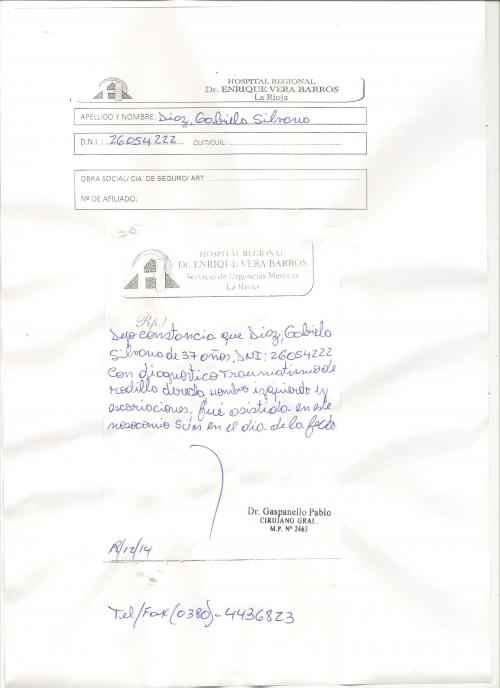 HOSPITAL REGIONAL
Dr. ENRIQUE VERA BARROS
La Rioja
APELLIDO Y NOMBRE: Diaz, Gabriela Silvana
D.N.I.: 26054222 CUIT/CUIL:
OBRA SOCIAL/ CIA. DE SEGURO/ ART:
Nº DE AFILIADO:
HOSPITAL REGIONAL
Dr. ENRIQUE VERA BARROS
Servicio de Urgencias Medicas
La Rioja
Rp./
Dejo constancia que Diaz, Gabriela
Silvana de 37 años, DNI: 26054222
Con diagnostico Traumatismo de
rodilla derecha Hombro izquierdo y
escoriaciones, fué asistida en este
nosocomio en el dia de la fecha
Dr. Gaspanello Pablo
CIRUJANO GRAL.
M.P. Nº 2463
18/12/14
Tel/Fax (0380)-4436823